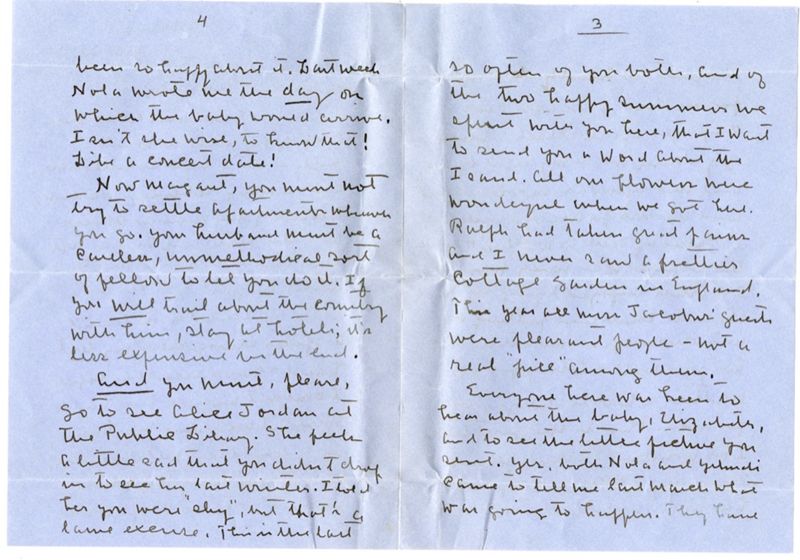 3
so often of you both, and of
the two happy summers we
spent with you here, that I want
to send you a word about the
Island. All our flowers were
wonderful when we got here.
Ralph had taken great pains
and I never saw a prettier
Cottage Garden in England.
This year all Miss Jacobus' guests
were pleasant people – not a
real "pill" among them.
Everyone here was keen to
hear about the baby, Elizabeth,
and to see the little picture you
sent. Yes, both Nola and Yehudi
came to tell me last March what
was going to happen. They have
4
been so happy about it. Last week
Nola wrote me the day on
which the baby would arrive.
Isn't she wise, to know that!
Like a concert date!
Now Margaret, you must not
try to settle apartments wherever
you go. Your husband must be a
careless, unmethodical sort
of fellow to let you do it. If
you will trail about the country
with him, stay at hotels; it's
less expensive in the end.
And you must, please,
go to see Alice Jordan at
the Public Library. She feels
a little sad that you didn't drop
in to see her last winter. I told
her you were "shy", but that's a
lame excuse. This is the last